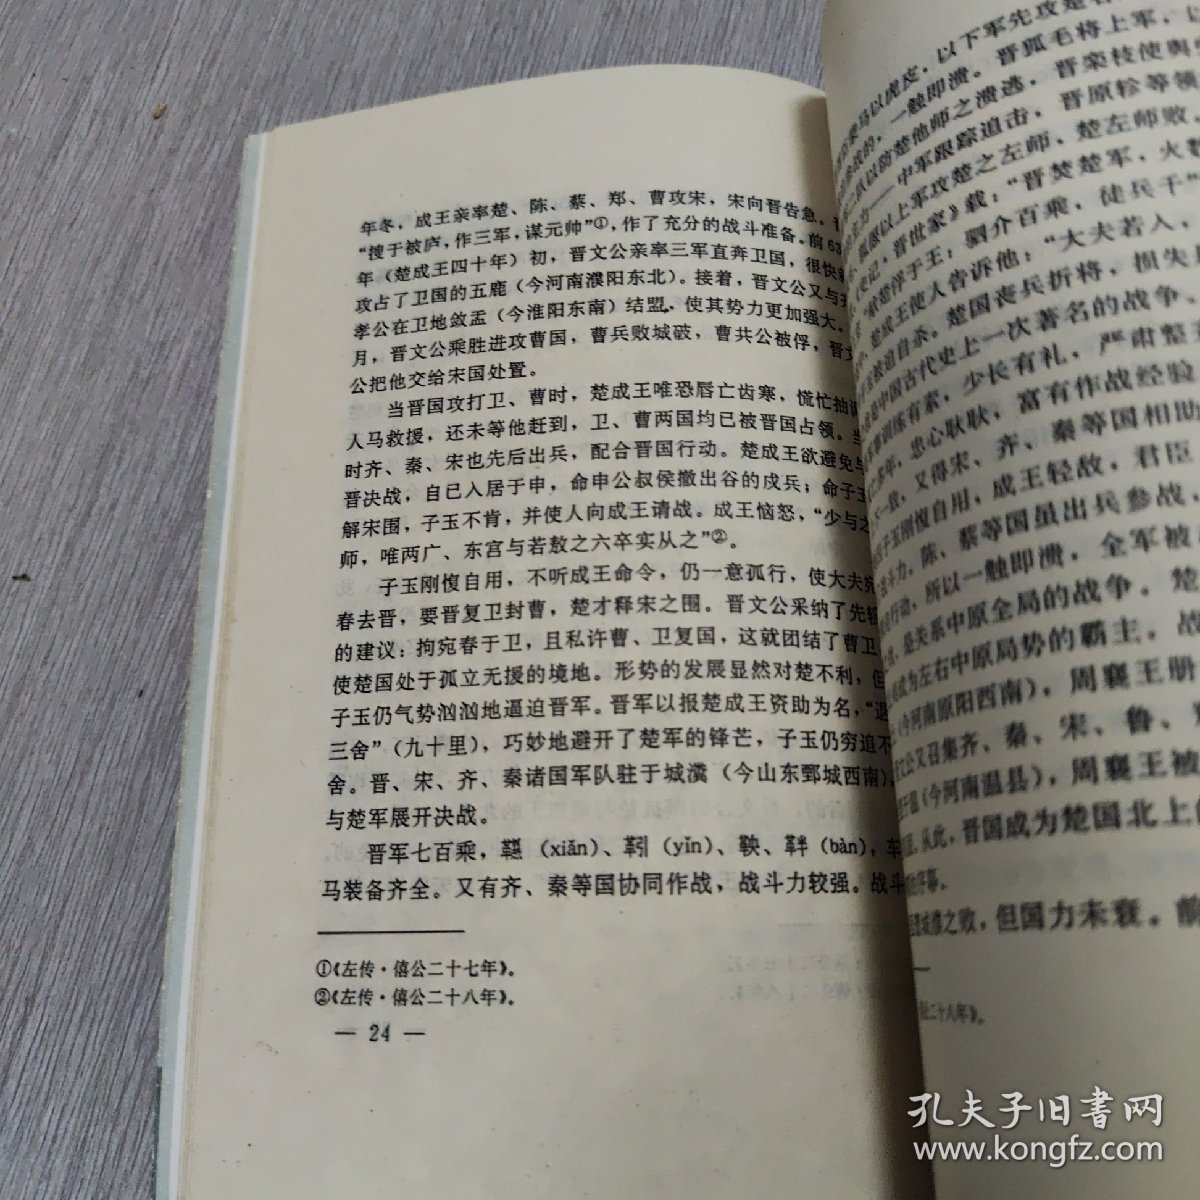 年冬，成王亲率楚、陈、蔡、郑、曹攻宋，宋向晋告急。
“搜于被庐，作三军，谋元帅”①，作了充分的战斗准备。前63
年（楚成王四十年）初，晋文公亲率三军直奔卫国，很快
攻占了卫国的五鹿（今河南濮阳东北）。接着，晋文公又与
孝公在卫地敛盂（今淮阳东南）结盟，使其势力更加强大。
月，晋文公乘胜进攻曹国，曹兵败城破，曹共公被俘，晋文
公把他交给宋国处置。
当晋国攻打卫、曹时，楚成王唯恐唇亡齿寒，慌忙抽
人马救援，还未等他赶到，卫、曹两国均已被晋国占领。
时齐、秦、宋也先后出兵，配合晋国行动。楚成王欲避免与
晋决战，自已入居于申，命申公叔侯撤出谷的戍兵；命子玉
解宋围，子玉不肯，并使人向成王请战。成王恼怒，“少与之
师，唯两广、东宫与若敖之六卒实从之”②。
子玉刚愎自用，不听成王命令，仍一意孤行，使大夫宛
春去晋，要晋复卫封曹，楚才释宋之围。晋文公采纳了先轸
的建议：拘宛春于卫，且私许曹、卫复国，这就团结了曹卫
使楚国处于孤立无援的境地。形势的发展显然对楚不利，但
子玉仍气势汹汹地逼迫晋军。晋军以报楚成王资助为名，“退
三舍”（九十里），巧妙地避开了楚军的锋芒，子玉仍穷追不
舍。晋、宋、齐、秦诸国军队驻于城濮（今山东鄄城西南），
与楚军展开决战。
晋军七百乘，韅（xiǎn）、靷（yǐn）、鞅、靽（bàn），车
马装备齐全。又有齐、秦等国协同作战，战斗力较强。战斗
①《左传·僖公二十七年》。
②《左传·僖公二十八年》。
— 24 —
马以虎皮，以下军先攻楚右
一触即溃。晋狐毛将上军，以
队以防楚他师之溃逃，晋栾枝使舆
中军跟踪追击，晋原轸等领
以上军攻楚之左师、楚左师败，
《史记·晋世家》载：“晋焚楚军，火数
楚俘于王：驷介百乘，徒兵千”
楚成王使人告诉他：“大夫若入，
被迫自杀。楚国丧兵折将，损失
是中国古代史上一次著名的战争。
训练有素，少长有礼，严肃整
多年，忠心耿耿，富有作战经验
下一致，又得宋、齐、秦等国相助
子玉刚愎自用，成王轻敌，君臣
斗力，陈、蔡等国虽出兵参战，
行动，所以一触即溃，全军被
是关系中原全局的战争。楚
成为左右中原局势的霸主。战
（今河南原阳西南），周襄王册
文公又召集齐、秦、宋、鲁、
于温（今河南温县），周襄王被
从此，晋国成为楚国北上
序幕。
城濮之败，但国力未衰。前
二十八年》。
孔夫子旧书网
www.kongfz.com